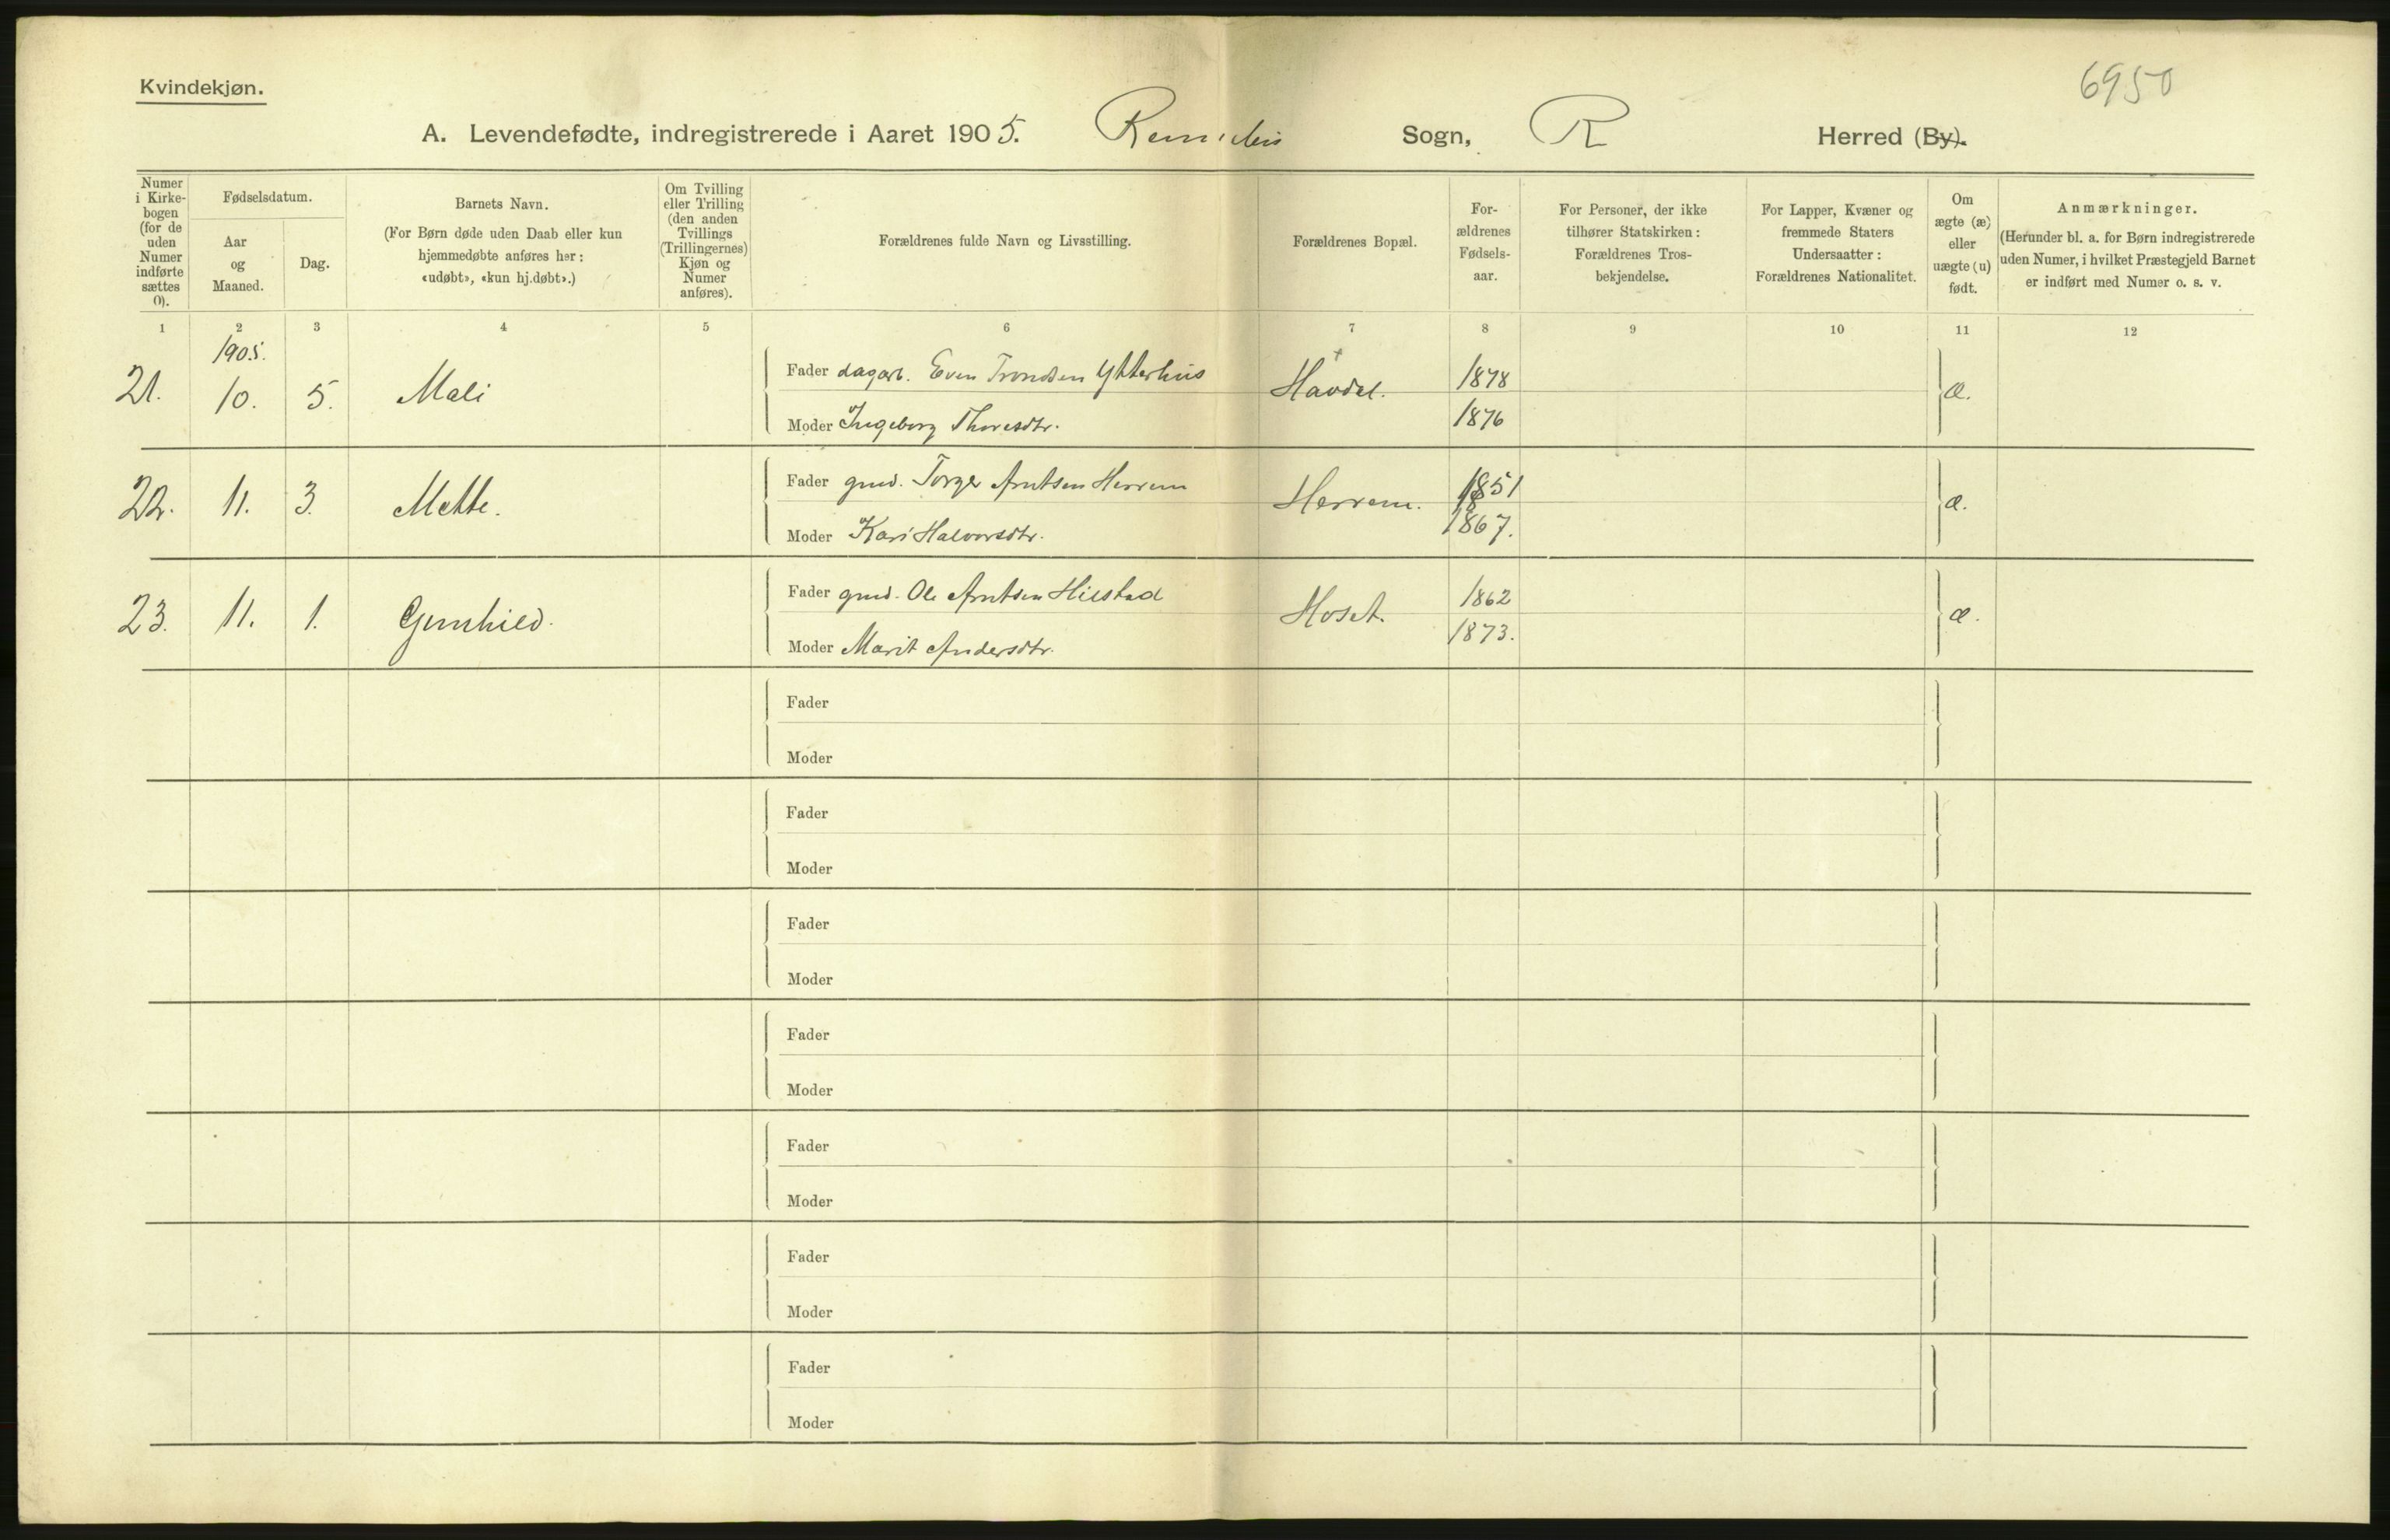 Kvindekjøn.
6950
A. Levendefødte, indregistrerede i Aaret 1905. Sogn, R Herred (By).
Numer i Kirkebogen (for de uden Numer indførte sættes 0).
Fødselsdatum.
Aar og Maaned.
Dag.
Barnets Navn.
(For Børn døde uden Daab eller kun hjemmedøbte anføres her: «udøbt», «kun hj.døbt».)
Om Tvilling eller Trilling (den anden Tvillings (Trillingernes) Kjøn og Numer anføres).
Forældrenes fulde Navn og Livsstilling.
Forældrenes Bopæl.
Forældrenes Fødselsaar.
For Personer, der ikke tilhører Statskirken: Forældrenes Trosbekjendelse.
For Lapper, Kvæner og fremmede Staters Undersaatter: Forældrenes Nationalitet.
Om ægte (æ) eller uægte (u) født.
Anmærkninger.
(Herunder bl. a. for Børn indregistrerede uden Numer, i hvilket Præstegjeld Barnet er indført med Numer o. s. v.
1 2 3 4 5 6 7 8 9 10 11 12
1905.
21. 10. 5. Mali Fader dagarb. Even Trondsen Ytterhus Havdal. 1878 æ.
Moder Ingeborg Thoresdtr. 1876
22. 11. 3. Mette. Fader gmd. Torger Arntsen Herrem Herrem. 1851 æ.
Moder Kari Halvorsdtr. 1867.
23. 11. 1. Gunhild. Fader gmd. Ole Arntsen Hilstad Hoset. 1862 æ.
Moder Marit Andersdtr. 1873.
Fader
Moder
Fader
Moder
Fader
Moder
Fader
Moder
Fader
Moder
Fader
Moder
Fader
Moder